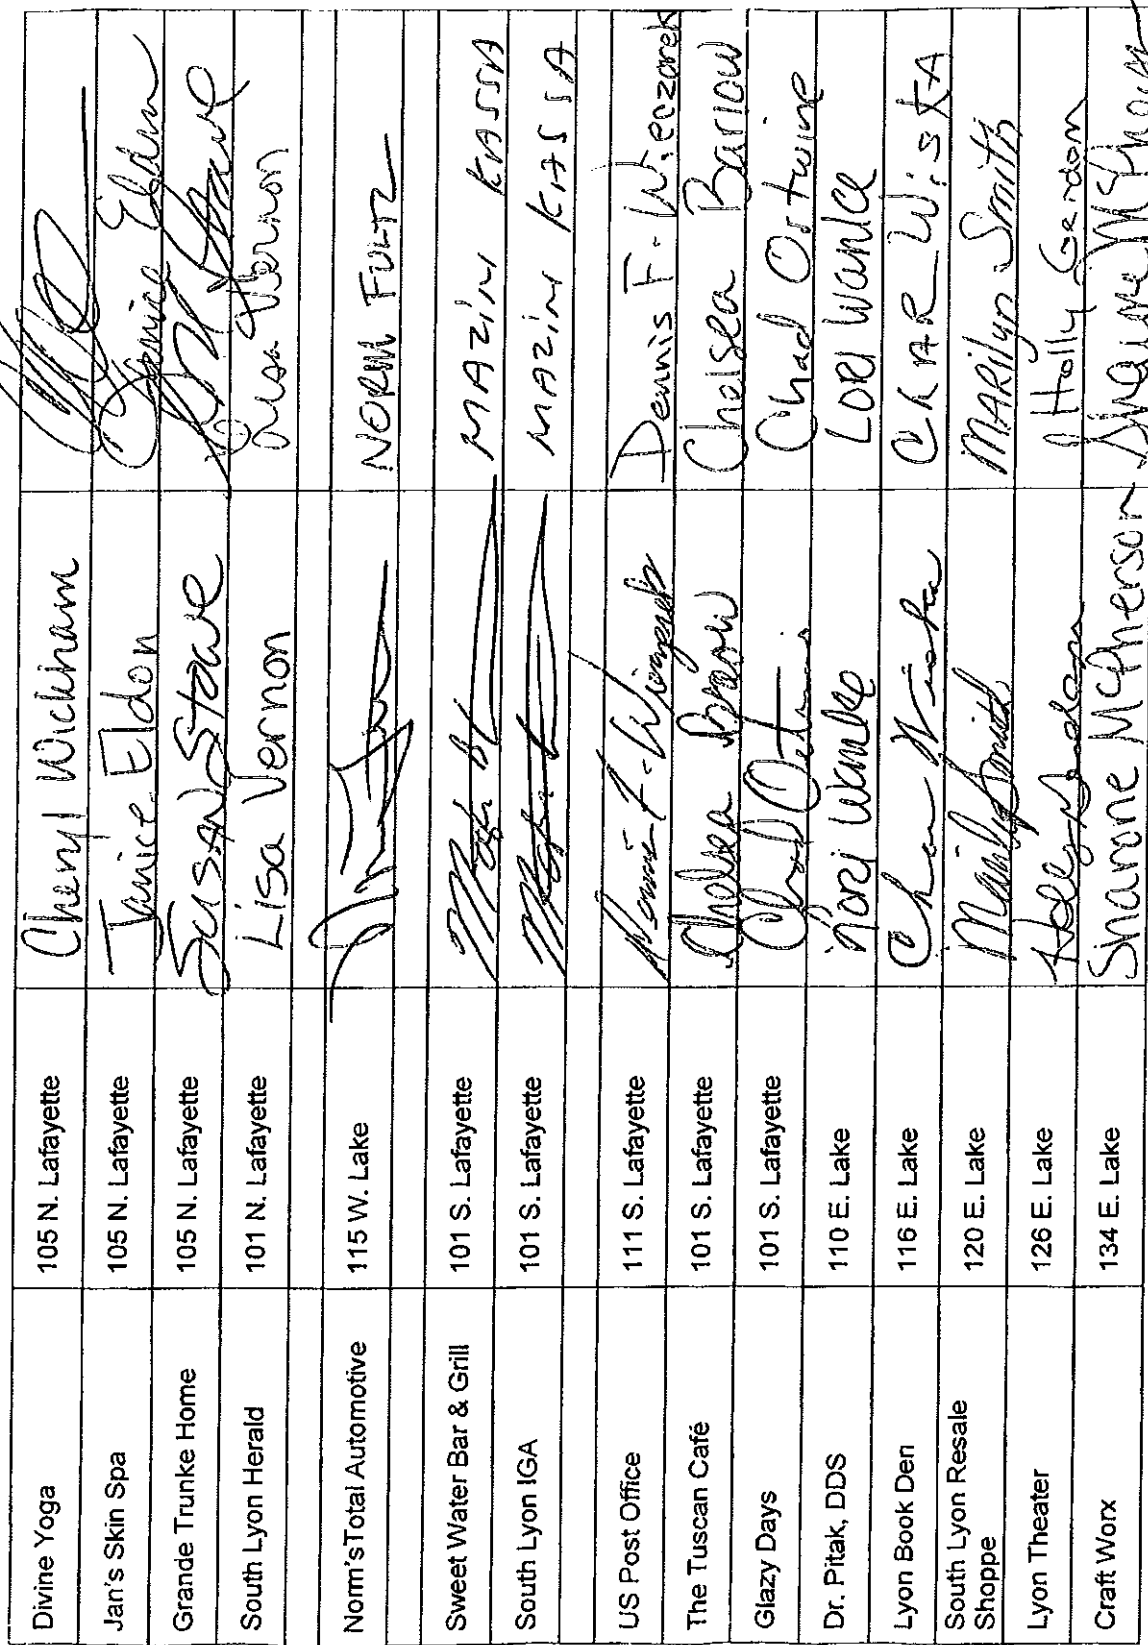 Divine Yoga 105 N. Lafayette Cheryl Wickham
Jan's Skin Spa 105 N. Lafayette Janice Eldon Janice Eldon
Grande Trunke Home 105 N. Lafayette SUSAN Stowe
South Lyon Herald 101 N. Lafayette Lisa Vernon Lisa Vernon
Norm's Total Automotive 115 W. Lake NORM FULTZ
Sweet Water Bar & Grill 101 S. Lafayette MAZIN KASSA
South Lyon IGA 101 S. Lafayette MAZIN KASSA
US Post Office 111 S. Lafayette Dennis F. Wieczorek
The Tuscan Café 101 S. Lafayette Chelsea Barlow Chelsea Barlow
Glazy Days 101 S. Lafayette Chad Ortwine
Dr. Pitak, DDS 110 E. Lake Lori Wanke
Lyon Book Den 116 E. Lake Char Wista CHAR WistA
South Lyon Resale
Shoppe 120 E. Lake Marilyn Smith MARilyn Smith
Lyon Theater 126 E. Lake Holly Gerdom
Craft Worx 134 E. Lake Sharone McPherson